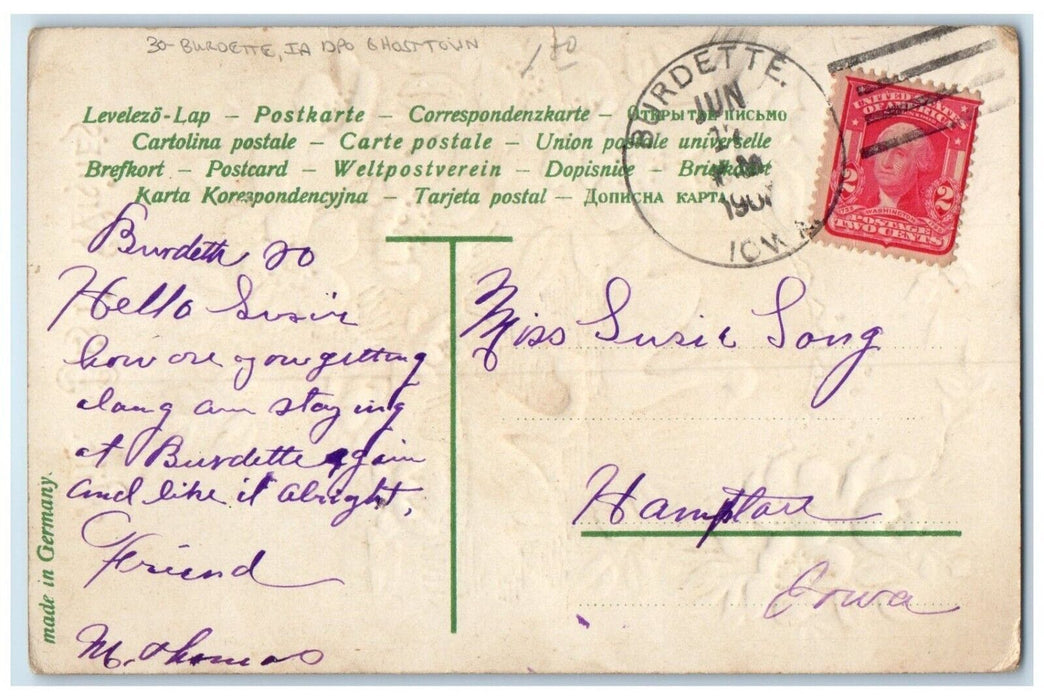 30- BURDETTE, IA DPO GHOST TOWN
Levelező-Lap – Postkarte – Correspondenzkarte – Открытое письмо
Cartolina postale – Carte postale – Union postale universelle
Brefkort – Postcard – Weltpostverein – Dopisnice – Briefkaart
Karta Korespondencyjna – Tarjeta postal – Дописна карта
BURDETTE.
JUN
IOWA
UNITED STATES
OF AMERICA
2 2
WASHINGTON
POSTAGE
TWO CENTS
Burdette 20
Hello Susie
how are you getting
along am staying
at Burdette again
and like it alright.
Friend
M. Thomas
Miss Susie Song
Hampton
Iowa
made in Germany.